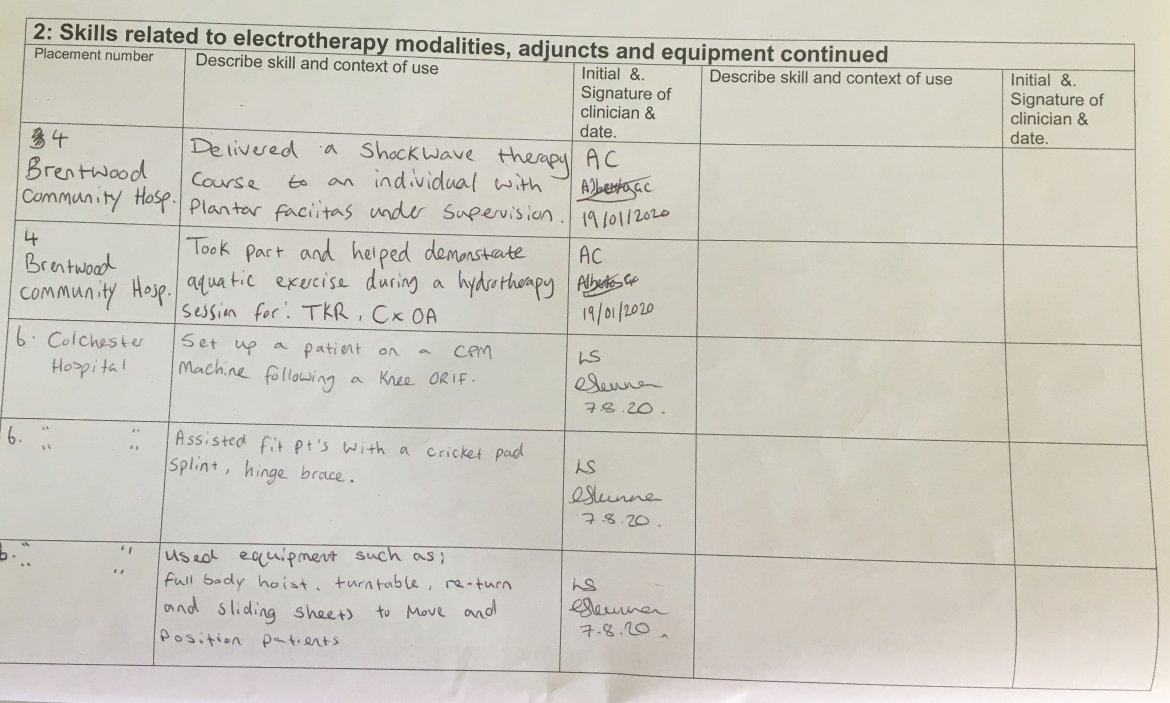 2: Skills related to electrotherapy modalities, adjuncts and equipment continued
Placement number
Describe skill and context of use
Initial &.
Signature of
clinician &
date.
Describe skill and context of use
Initial &.
Signature of
clinician &
date.
4
Brentwood
Community Hosp.
Delivered a Shockwave therapy
Course to an individual with
Plantar faciitas under supervision.
AC
19/01/2020
4
Brentwood
community Hosp.
Took part and helped demonstrate
aquatic exercise during a hydrotherapy
session for: TKR, Cx OA
AC
19/01/2020
6. Colchester
Hospital
Set up a patient on a CPM
Machine following a Knee ORIF.
LS
7.8.20.
6. " "
" "
Assisted fit Pt's with a cricket pad
splint, hinge brace.
LS
7.8.20.
6. " "
" "
Used equipment such as;
full body hoist, turntable, re-turn
and sliding sheets to Move and
Position patients
LS
7.8.20.